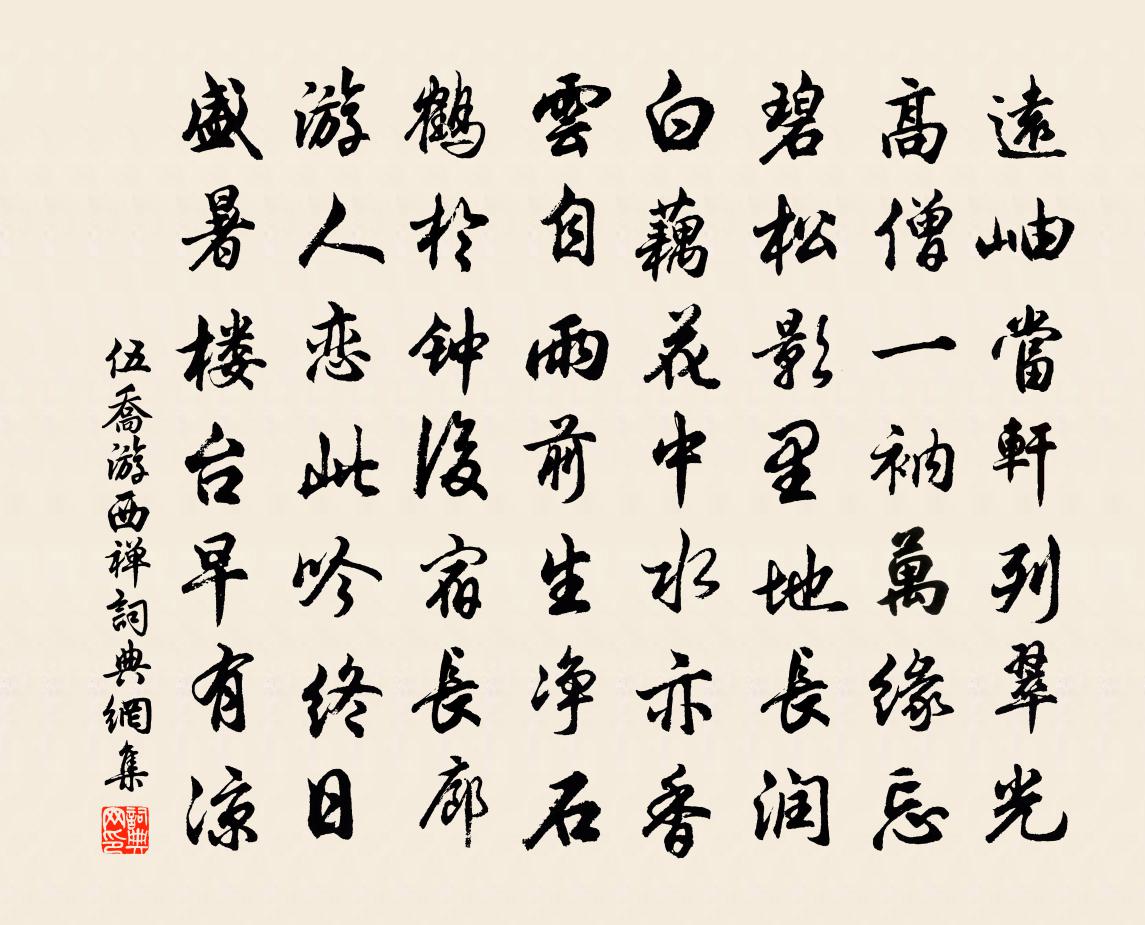 遠岫當軒列翠光
高僧一衲萬緣忘
碧松影里地長润
白藕花中水亦香
雲自雨前生净石
鶴於钟後宿長廊
游人恋此吟终日
盛暑楼台早有凉
伍喬游西禅詞典網集
詞典
网印